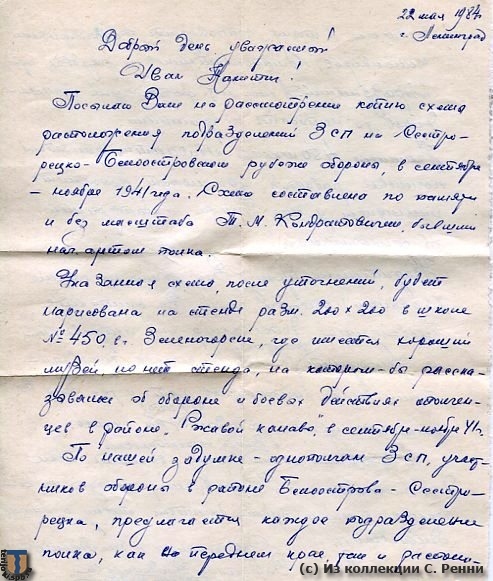 22 мая 1984г
г. Ленинград
Добрый день, уважаемый
Иван Никитич!
Посылаю Вам на рассмотрение копию схемы
расположения подразделений 3 СП на Сестро-
рецко-Белоостровском рубеже обороны, в сентябре
- ноябре 1941 года. Схема составлена по памяти
и без масштаба Т. М. Кондратовичем, бывшим
нач. артом полка.
Указанная схема, после уточнений, будет
нарисована на стенде разм. 200 х 200 в школе
№ 450, г. Зеленогорске, где имеется хороший
музей, но нет стенда, на котором-бы расска-
зывалось об обороне и боевых действиях ополчен-
цев в районе "Ржавой канавы", в сентябре-ноябре 41г.
По нашей задумке - однополчан 3 СП, участ-
ников обороны в районе Белоострова - Сестро-
рецка, предлагается каждое подразделение
полка, как на переднем крае, так и
(c) Из коллекции С. Ренни